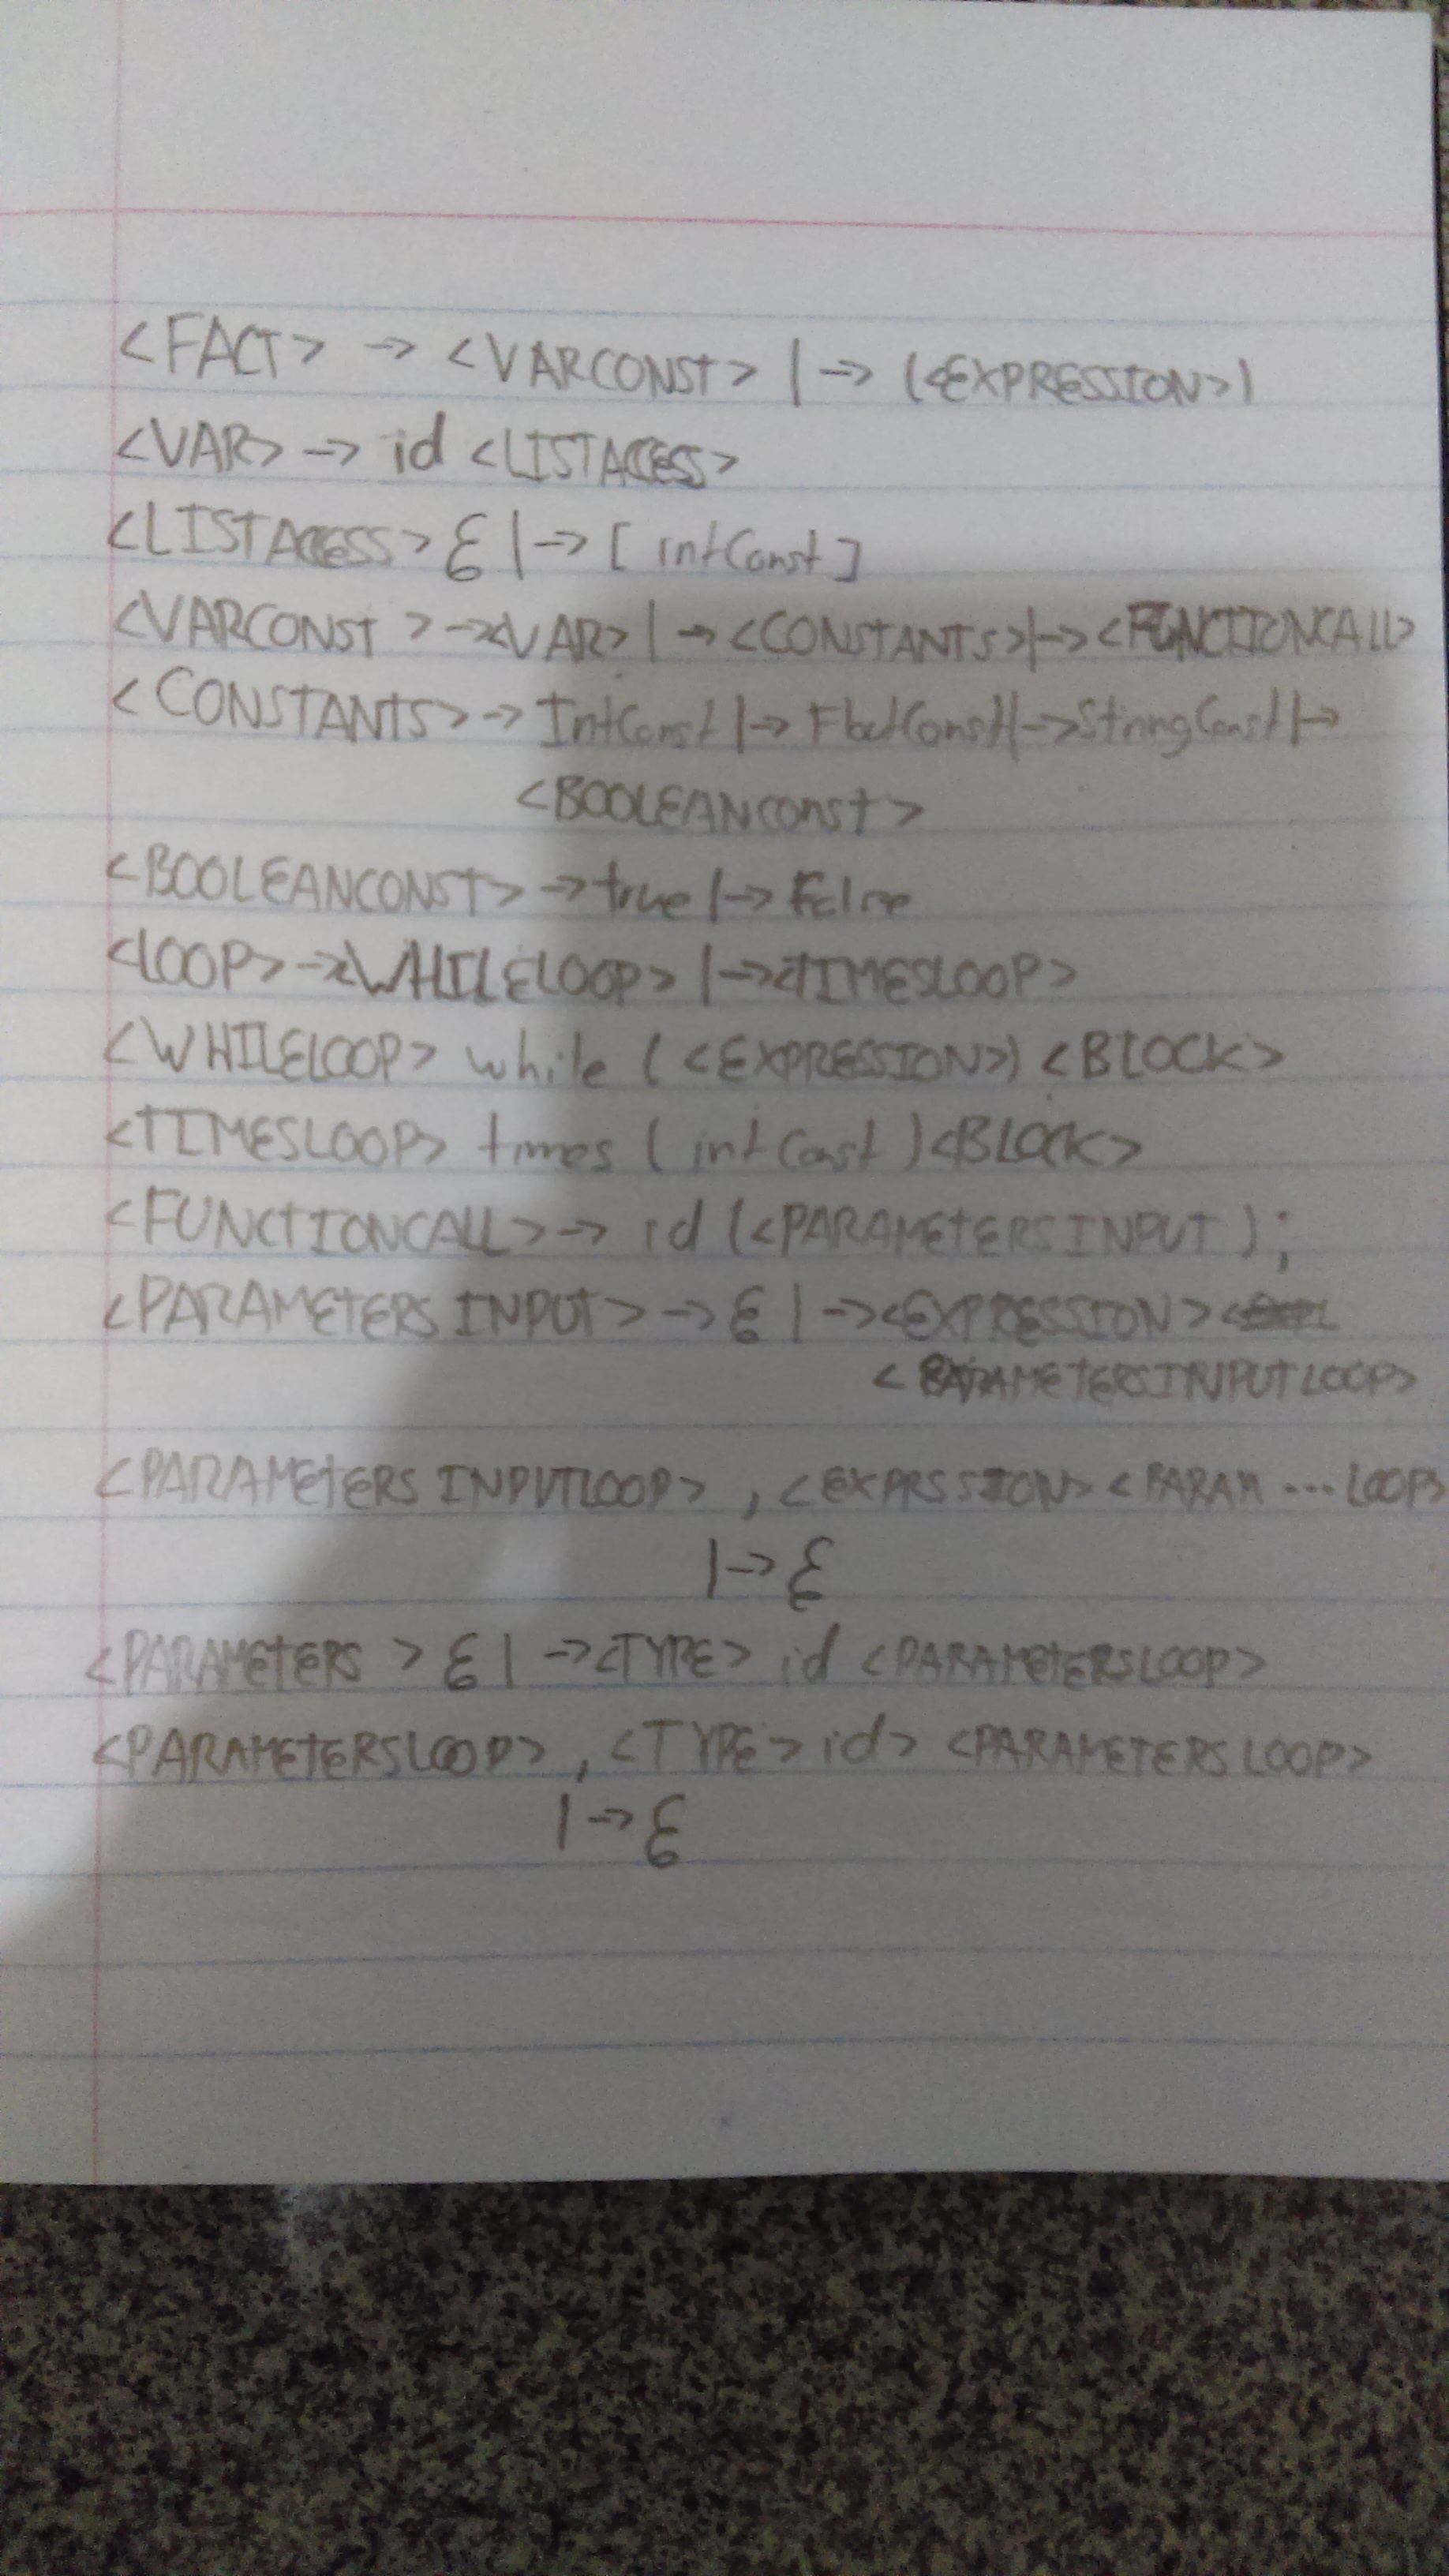 <FACT> -> <VARCONST> | -> (<EXPRESSION>)
<VAR> -> id <LISTACCESS>
<LISTACCESS> ε | -> [ intConst ]
<VARCONST> -> <VAR> | -> <CONSTANTS> | -> <FUNCTIONCALL>
<CONSTANTS> -> IntConst | -> FloatConst | -> StringConst | ->
<BOOLEANConst>
<BOOLEANCONST> -> true | -> False
<LOOP> -> <WHILELOOP> | -> <TIMESLOOP>
<WHILELOOP> while (<EXPRESSION>) <BLOCK>
<TIMESLOOP> times ( int Const ) <BLOCK>
<FUNCTIONCALL> -> id (<PARAMETERSINPUT ) ;
<PARAMETERS INPUT> -> ε | -> <EXPRESSION> <
<PARAMETERSINPUTLOOP>
<PARAMETERS INPUTLOOP> , <EXPRSSION> <PARAM ... LOOP>
| -> ε
<PARAMETERS > ε | -> <TYPE> id <PARAMETERSLOOP>
<PARAMETERSLOOP> , <TYPE> id> <PARAMETERS LOOP>
| -> ε